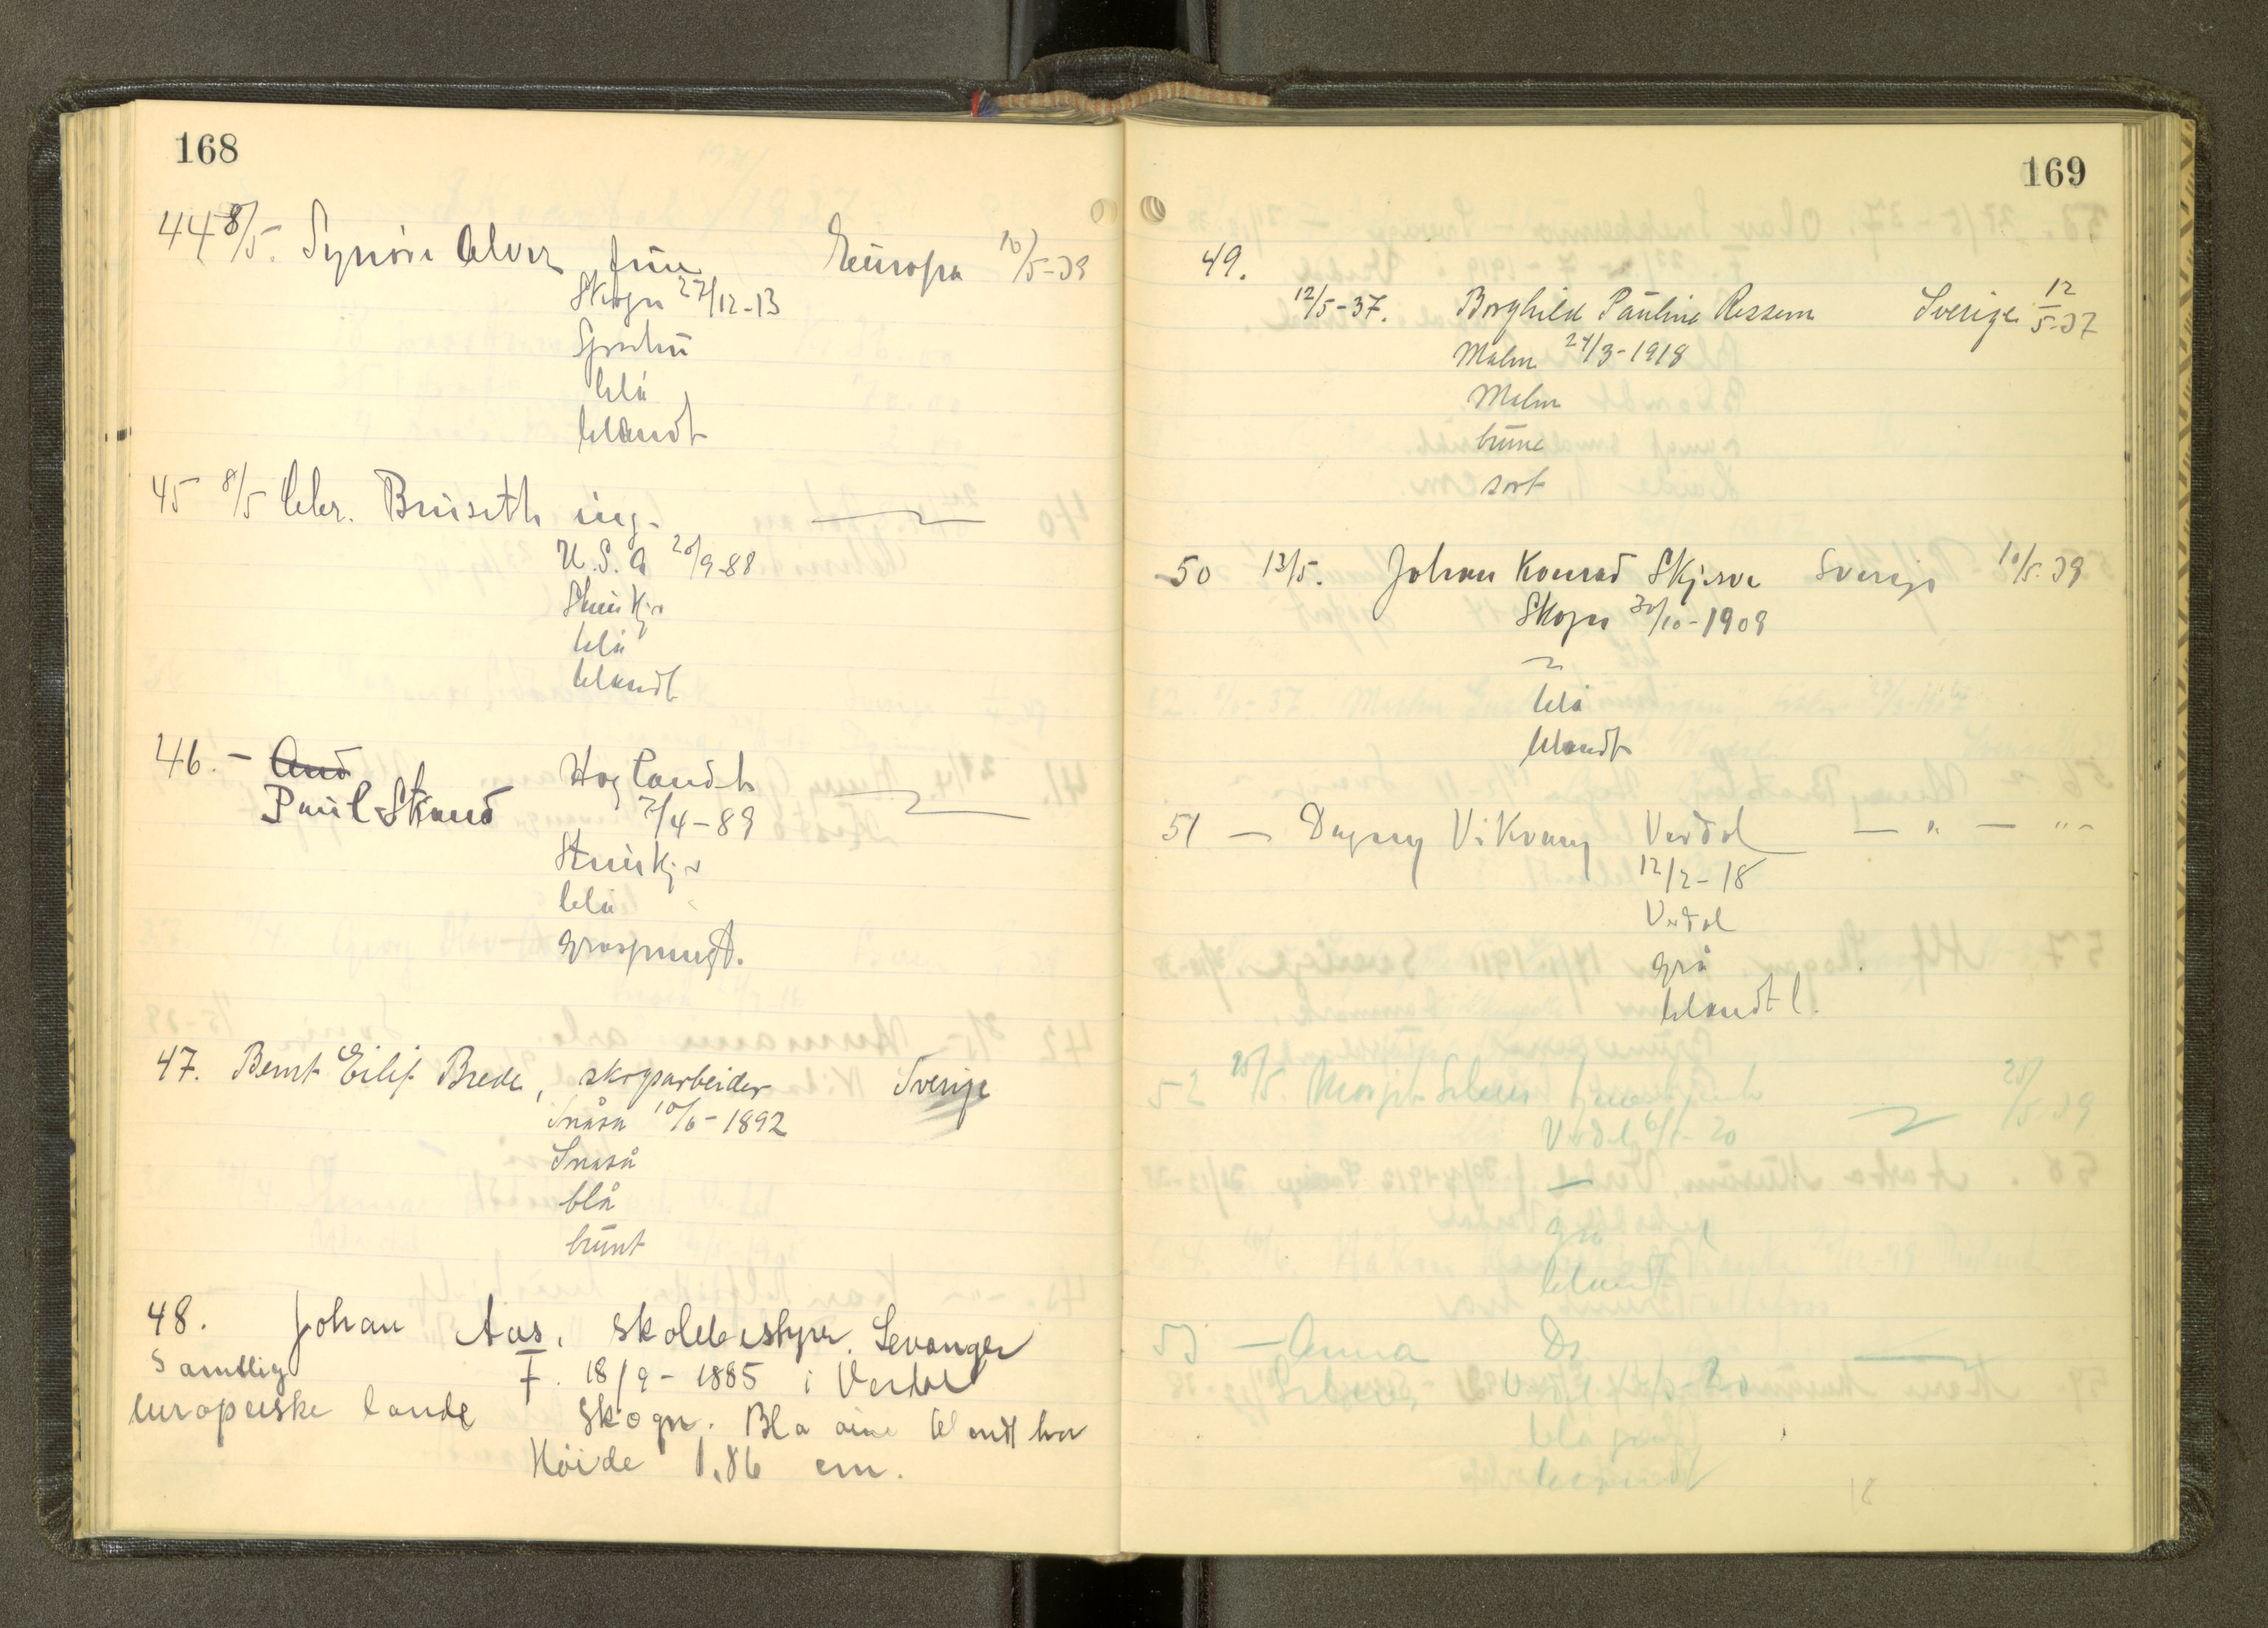 168
44 8/5. Synøve Alver frue Europa 10/5-39
Skogn 27/12-13
Sparbu
blå
blandt
45 8/5 Chr. Bruseth ing.
U.S.A 20/9-88
Steinkjer
blå
blandt
46. - And
Paul Strand Hoglandet
7/4-89
Steinkjer
blå
gråsprængt.
47. Bernt Eilif Brede, skogsarbeider Sverige
Snåsa 10/6-1892
Snåsa
blå
brunt
48. Johan Aas, skolebestyrer. Levanger
Samtlig F. 18/9-1885 i Verdal
europeiske lande Skogn. Blå øine blondt hår
Høide 1.86 cm.
169
49.
12/5-37. Borghild Pauline Ressem Sverige 12/5-37
Malm 24/3-1918
Malm
brune
sort
50 13/5. Johan Konrad Skjerve Sverige 10/5.39
Skogn 30/10-1909
blå
blandt
51 — Dagny Vikvang Verdal — " — " -
12/2-18
Verdal
grå
blandt
52 25/5. Margit 25/5.39
Verdal 6/1-20
grå
blandt
53 — Anna Do
Verdal
blå